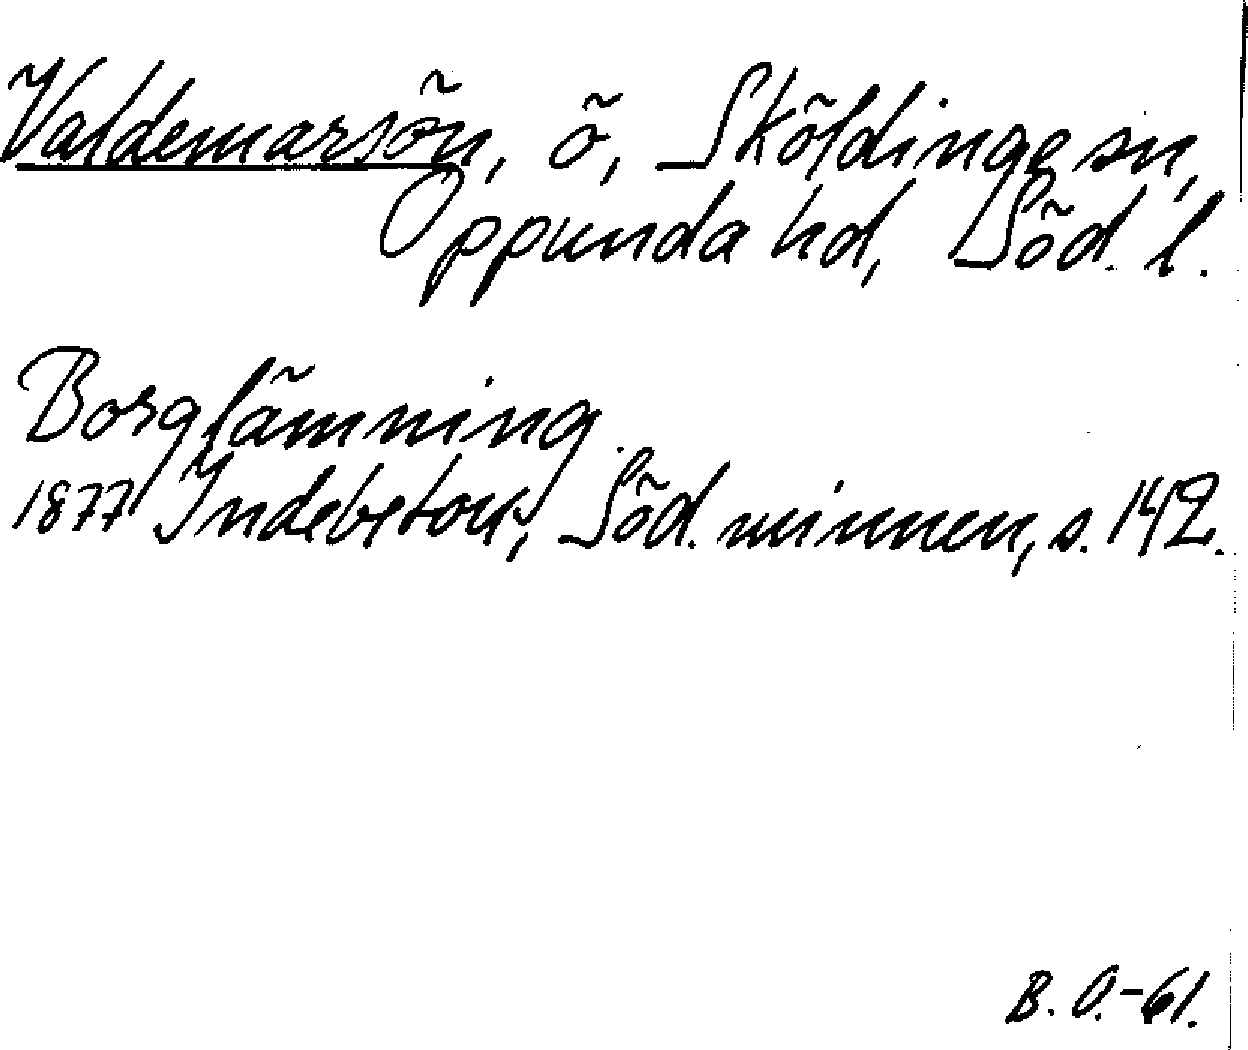 Valdemarsön, ö, Sköldinge sn,
Oppunda hd, Söd. l.
Borglämning.
1877 Indebetou, Söd. minnen, s. 142.
B. O.-61.